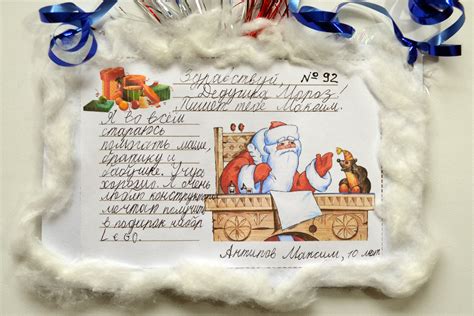 Здравствуй, № 92
Дедушка Мороз!
Пишет тебе Максим.
Я во всём
стараюсь
помогать маме,
братику и
бабушке. Учусь
хорошо. Я очень
люблю конструктор
мечтаю получить
в подарок набор
LEGO.
Антипов Максим, 10 лет